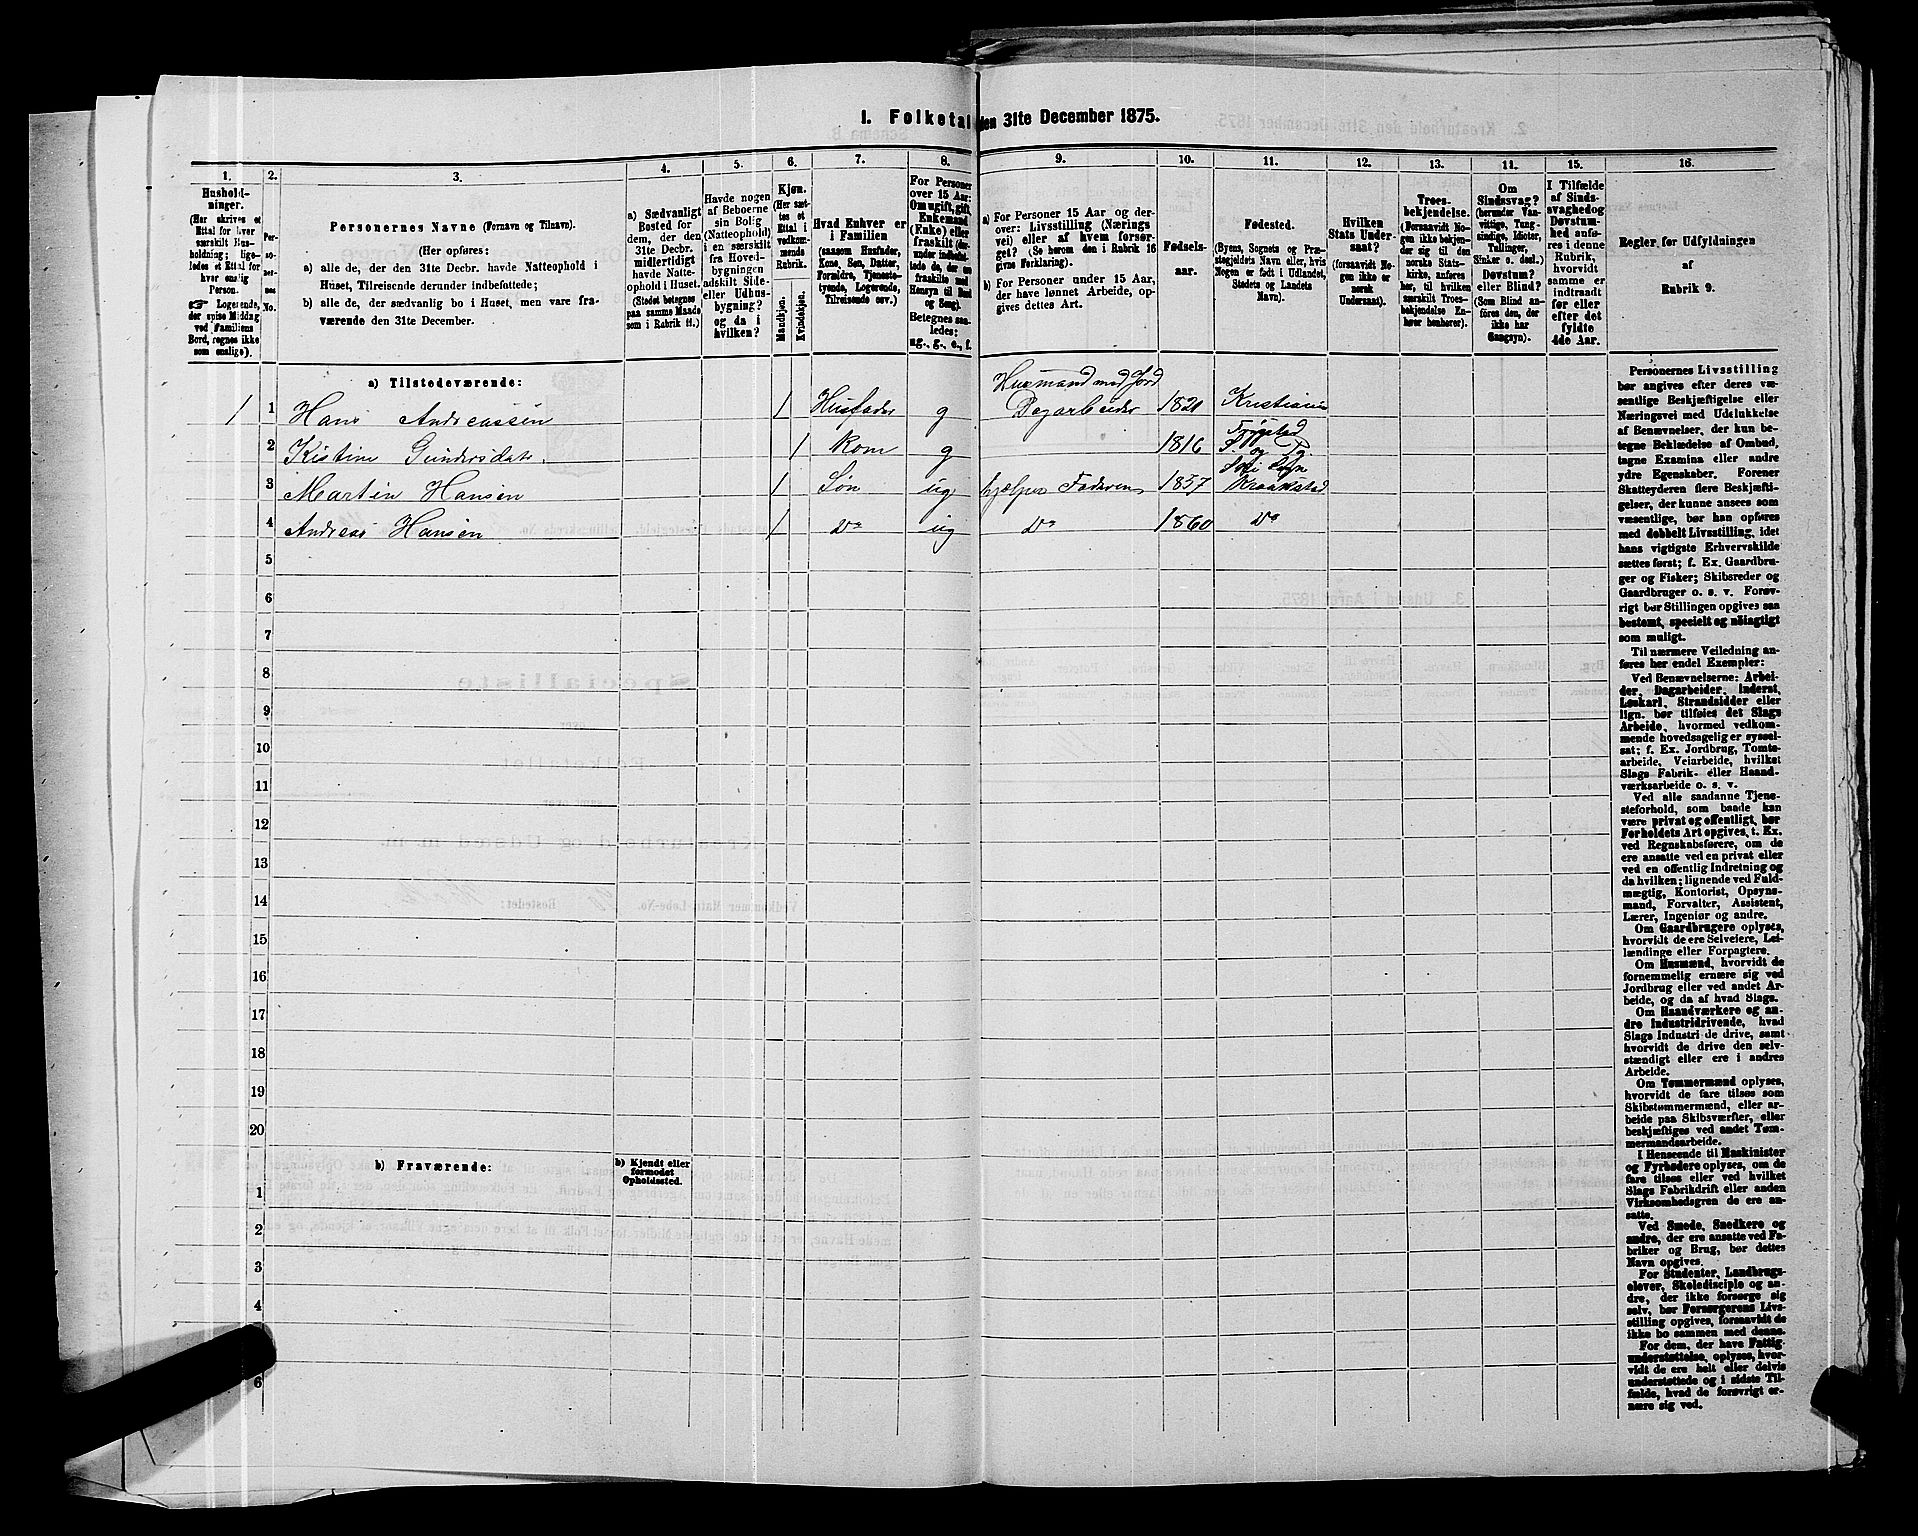 I. Folketal den 31te December 1875.
1. 2. 3. 4. 5. 6. 7. 8. 9. 10. 11. 12. 13. 14. 15. 16.
Hushold-
ninger.
(Her skrives et
Ettal for hver
særskilt Hus-
holdning; lige-
ledes et Ettal for
hver enslig
Person.
☞ Logerende,
der spise Middag
ved Familiens
Bord, regnes ikke
som enslige).
Per-
so-
ner-
nes
No.
Personernes Navne (Fornavn og Tilnavn).
(Her opføres:
a) alle de, der den 31te Decbr. havde Natteophold i
Huset, Tilreisende derunder indbefattede;
b) alle de, der sædvanlig bo i Huset, men vare fra-
værende den 31te December.
a) Sædvanligt
Bosted for
dem, der den
31te Decbr.
midlertidigt
havde Natte-
ophold i Huset.
(Stedet betegnes
paa samme Maade
som i Rubrik 11.)
Havde nogen
af Beboerne
sin Bolig
(Natteophold)
i en særskilt
fra Hoved-
bygningen
adskilt Side-
eller Udhus-
bygning?
og da i
hvilken?
Kjøn.
(Her sæt-
tes et
Ettal i
vedkom-
mende
Rubrik.
Mandkjøn.
Kvindekjøn.
Hvad Enhver er
i Familien
(saasom Husfader,
Kone, Søn, Datter,
Forældre, Tjeneste-
tyende, Logerende,
Tilreisende osv.)
For Personer
over 15 Aar:
Om ugift, gift,
Enkemand
(Enke) eller
fraskilt (der-
under indbefat-
tede de, der ere
fraskilte med
Hensyn til Bord
og Seng).
Betegnes saa-
ledes:
ug., g., e., f.
a) For Personer 15 Aar og der-
over: Livsstilling (Nærings-
vei) eller af hvem forsør-
get? (Se herom den i Rubrik 16
givne Forklaring.)
b) For Personer under 15 Aar,
der have lønnet Arbeide, op-
gives dettes Art.
Fødsels-
aar.
Fødested.
(Byens, Sognets og Præ-
stegjeldets Navn eller, hvis
Nogen er født i Udlandet,
Stedets og Landets
Navn).
Hvilken
Stats Under-
saat?
(forsaavidt No-
gen ikke er
norsk
Undersaat).
Troes-
bekjendelse.
(Forsaavidt No-
gen ikke bekjen-
der sig til den
norske Stats-
kirke, anføres
her, til hvilken
særskilt Troes-
bekjendelse En-
hver henhører).
Om
Sindssvag?
(herunder Van-
vittige, Tung-
sindige, Idioter,
Tullinger,
Sinker o. desl.)
Døvstum?
eller Blind?
(Som Blind an-
føres den, der
ikke har
Gangsyn).
I Tilfælde
af Sinds-
svaghed og
Døvstum-
hed anfø-
res i denne
Rubrik,
hvorvidt
samme er
indtraadt
før eller
efter det
fyldte
4de Aar.
Regler for Udfyldningen
af
Rubrik 9.
a) Tilstedeværende:
Husmand med Jord
1 1 Hans Andreassen 1 Husfader g Dagarbeider 1821 Kristiania
2 Kistine Gundersdatr. 1 kone g 1816 Frogstad S. og Pg
3 Martin Hansen 1 Søn ug hjælper Faderen 1857 Ski Sogn Kraakstad
4 Andreas Hansen 1 Do ug Do 1860 Do
5
6
7
8
9
10
11
12
13
14
15
16
17
18
19
20
b) Fraværende:
b) Kjendt eller
formodet
Opholdssted.
1
2
3
4
6
Personernes Livsstilling
bør angives efter deres væ-
sentlige Beskjæftigelse eller
Næringsvei med Udelukkelse
af Benævnelser, der kun be-
tegne Beklædelse af Ombud,
tagne Examina eller andre
ydre Egenskaber. Forener
Skatteyderen flere Beskjæfti-
gelser, der kunne ansees som
væsentlige, bør han opføres
med dobbelt Livsstilling, idet
hans vigtigste Erhvervskilde
sættes først; f. Ex. Gaardbru-
ger og Fisker; Skibsreder og
Gaardbruger o. s. v. Forøv-
rigt bør Stillingen opgives saa
bestemt, specielt og nøiagtigt
som muligt.
Til nærmere Veiledning an-
føres her endel Exempler:
Ved Benævnelserne: Arbei-
der, Dagarbeider, Inderst,
Løskarl, Strandsidder eller
lign. bør tilføies det Slags
Arbeide, hvormed vedkom-
mende hovedsagelig er syssel-
sat; f. Ex. Jordbrug, Tomte-
arbeide, Veiarbeide, hvilket
Slags Fabrik- eller Haand-
værksarbeide o. s. v.
Ved alle saadanne Tjene-
steforhold, som baade kan
være privat og offentligt, bør
Forholdets Art opgives, t. Ex.
ved Regnskabsførere, om de
ere ansatte ved en privat eller
ved en offentlig Indretning og
da hvilken; lignende ved Fuld-
mægtig, Kontorist, Opsyns-
mand, Forvalter, Assistent,
Lærer, Ingeniør og andre.
Om Gaardbrugere oplyses,
hvorvidt de ere Selveiere, Lei-
lændinge eller Forpagtere.
Om Husmænd, hvorvidt de
fornemmelig ernære sig ved
Jordbrug eller ved andet Ar-
beide, og da af hvad Slags.
Om Haandværkere og an-
dre Industridrivende, hvad
Slags Industri de drive, samt
hvorvidt de drive den selv-
stændigt eller ere i andres
Arbeide.
Om Tømmermænd oplyses,
hvorvidt de fare tilsøs som
Skibstømmermænd, eller ar-
beide paa Skibsværfter, eller
beskjæftiges ved andet Tøm-
mermandsarbeide.
I Henseende til Maskinister
og Fyrbødere oplyses, om de
fare tilsøs eller ved hvilket
Slags Fabrikdrift eller anden
Virksomhedsgren de ere an-
satte.
Ved Smede, Snedkere og
andre, der ere ansatte ved Fa-
briker og Brug, bør dettes
Navn opgives.
For Studenter, Landbrugs-
elever, Skoledisciple og an-
dre, der ikke forsørge sig
selv, bør Forsørgerens Livs-
stilling opgives, forsaavidt de
ikke bo sammen med denne.
For dem, der have Fattig-
understøttelse, oplyses, hvor-
vidt de ere helt eller delvis
understøttede og i sidste Til-
fælde, hvad de forøvrigt er-
nære sig ved.